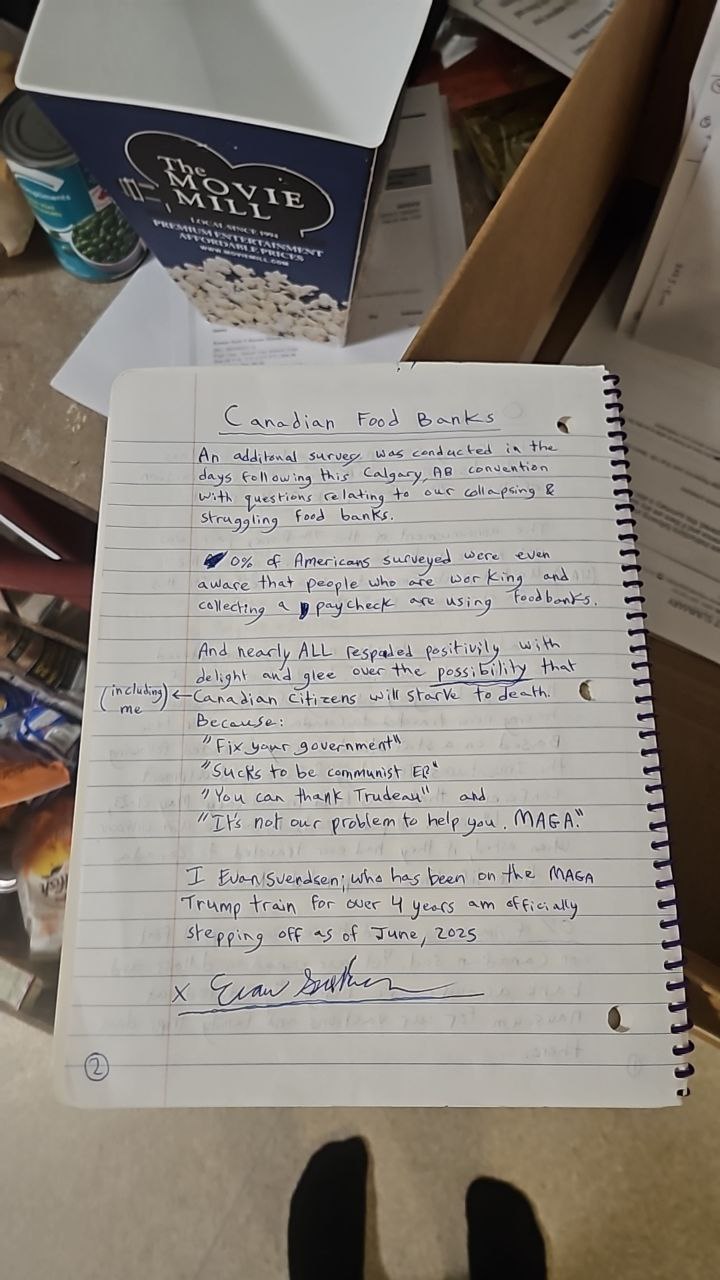 The
MOVIE
MILL
LOCAL SINCE 1994
PREMIUM ENTERTAINMENT
AFFORDABLE PRICES
WWW.MOVIEMILL.COM
Canadian Food Banks
An additonal survey was conducted in the
days following this Calgary, AB convention
with questions relating to our collapsing &
struggling food banks.
0% of Americans surveyed were even
aware that people who are working and
collecting a paycheck are using foodbanks.
And nearly ALL respoded positivily with
delight and glee over the possibility that
(including me) ← Canadian citizens will starve to death.
Because:
"Fix your government"
"Sucks to be communist EH"
"You can thank Trudeau" and
"It's not our problem to help you. MAGA."
I Evan Svendsen; who has been on the MAGA
Trump train for over 4 years am officially
stepping off as of June, 2025
x Evan
2